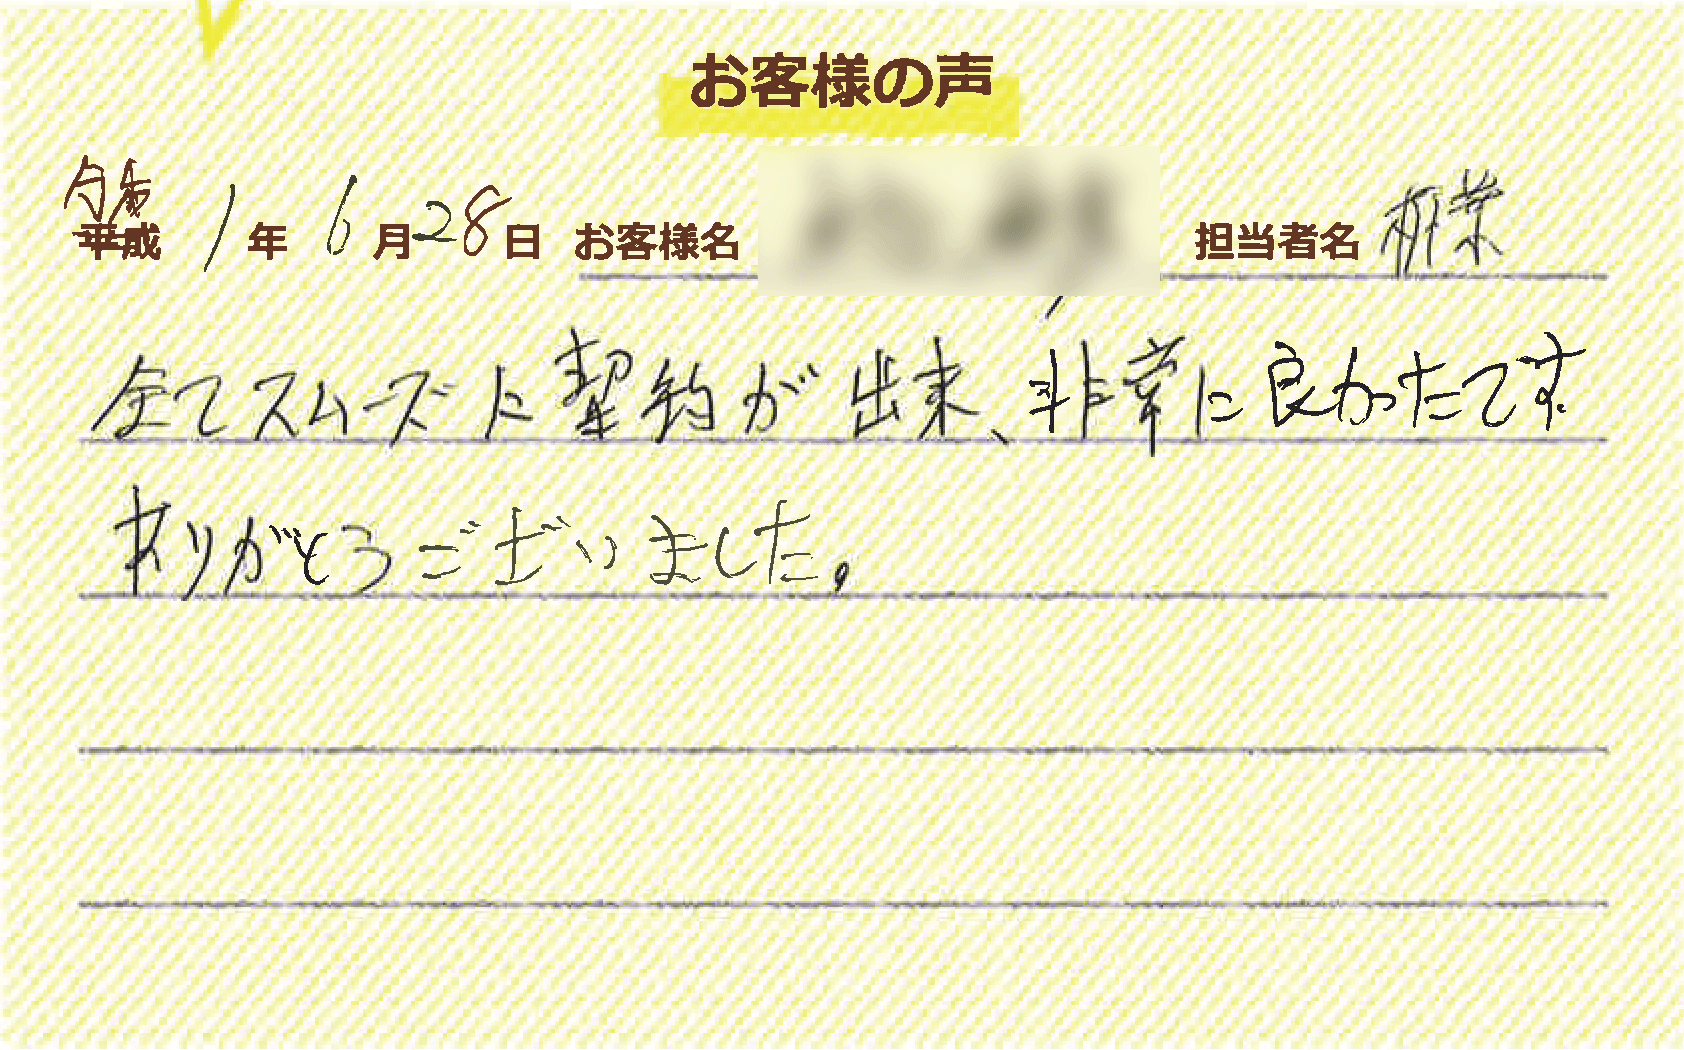 お客様の声
令和
平成 1年 6月28日 お客様名 担当者名
全てスムーズに契約が出来、非常に良かったです
ありがとうございました。